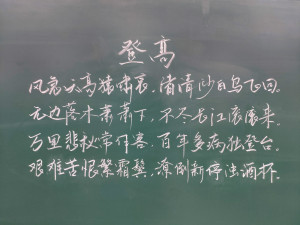 登高
风急天高猿啸哀，渚清沙白鸟飞回。
无边落木萧萧下，不尽长江滚滚来。
万里悲秋常作客，百年多病独登台。
艰难苦恨繁霜鬓，潦倒新停浊酒杯。